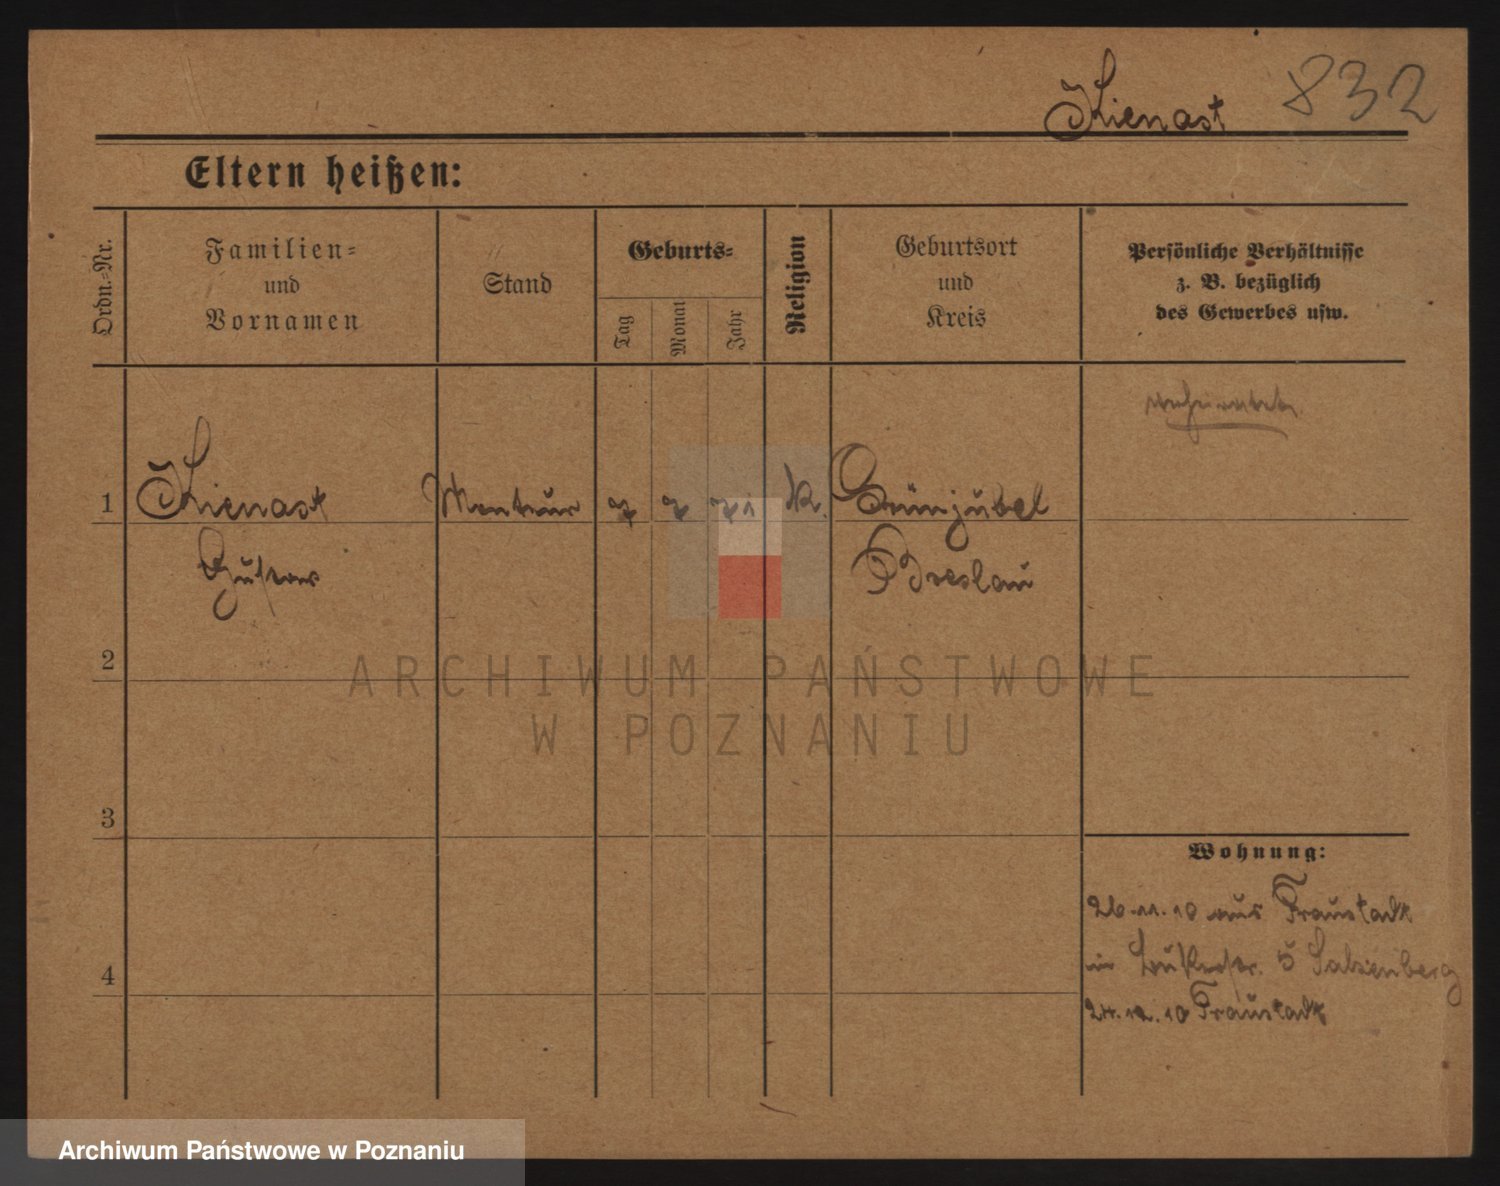 Kienast 832
Eltern heißen:
Ordn.=Nr.
Familien=
und
Vornamen
Stand
Geburts=
Tag
Monat
Jahr
Religion
Geburtsort
und
Kreis
Persönliche Verhältnisse
z. B. bezüglich
des Gewerbes usw.
verheiratet
1 Kienast Monteur 7 7 71 k. Grünhübel
Gustav Breslau
2
3
4
Wohnung:
26.11.10 aus Fraustadt
in 5 Salzenberg
24.12.10 Fraustadt
ARCHIWUM PAŃSTWOWE
W POZNANIU
Archiwum Państwowe w Poznaniu